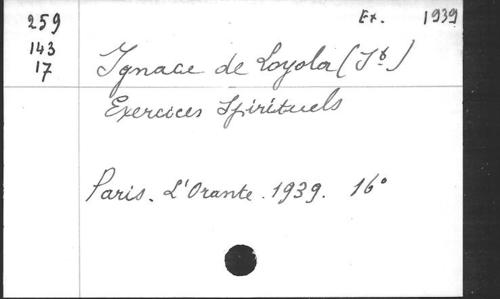 259
143
17
Ex. 1939
Ignace de Loyola (St)
Exercices Spirituels
Paris. L'Orante. 1939. 16°